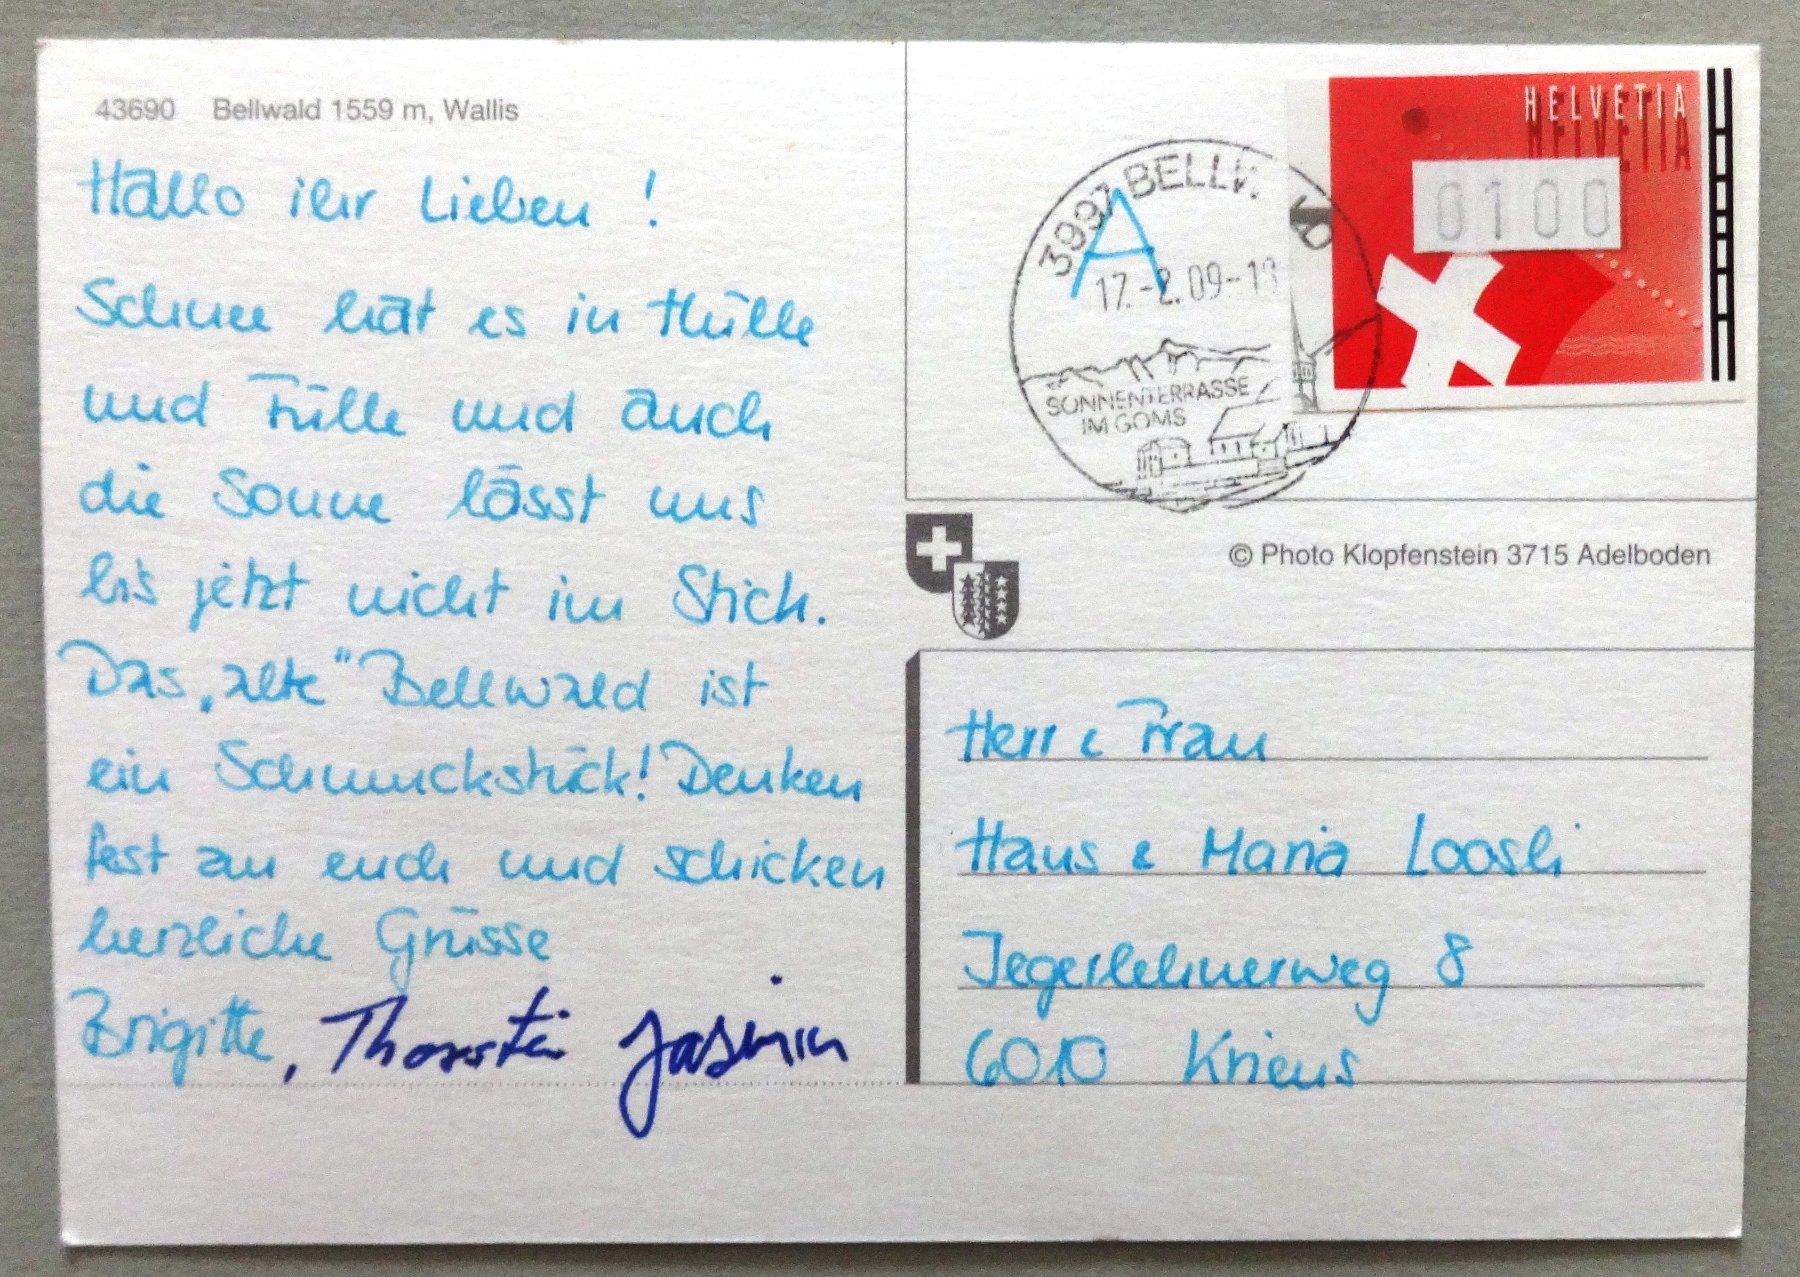 43690 Bellwald 1559 m, Wallis
Hallo ihr Lieben !
Schnee hat es in Hülle
und Fülle und auch
die Sonne lässt uns
bis jetzt nicht im Stich.
Das „alte" Bellwald ist
ein Schmuckstück! Denken
fest an euch und schicken
herzliche Grüsse
Brigitte, Thorsten Jasmin
HELVETIA
HELVETIA
0100
3997 BELLW
A
17.-2.09-1
SONNENTERRASSE
IM GOMS
© Photo Klopfenstein 3715 Adelboden
Herr & Frau
Hans & Maria Loosli
Jegerlehnerweg 8
6010 Kriens